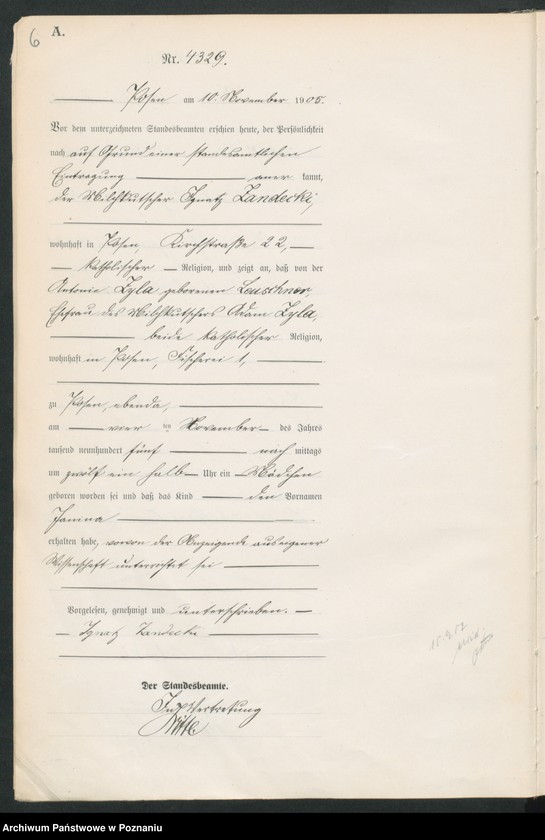 6 A.
Nr. 4329.
Posen am 10. November 1905.
Vor dem unterzeichneten Standesbeamten erschien heute, der Persönlichkeit
nach auf Grund einer standesamtlichen
Eintragung aner kannt,
der Milchkutscher Ignatz Zandecki,
wohnhaft in Posen, Kirchstraße 22,
katholischer Religion, und zeigt an, daß von der
Antonie Zyla geborenen Leuschner,
Ehefrau des Milchkutschers Adam Zyla,
beide katholischer Religion,
wohnhaft in Posen, Fischerei 1,
zu Posen, ebenda,
am vier ten November des Jahres
tausend neunhundert fünf nach mittags
um zwölf ein halb Uhr ein Mädchen
geboren worden sei und daß das Kind den Vornamen
Janina
erhalten habe, wovon der Anzeigende aus eigener
Wissenschaft unterrichtet sei
Vorgelesen, genehmigt und unterschrieben.
Ignatz Zandecki
Der Standesbeamte.
In Vertretung
Archiwum Państwowe w Poznaniu